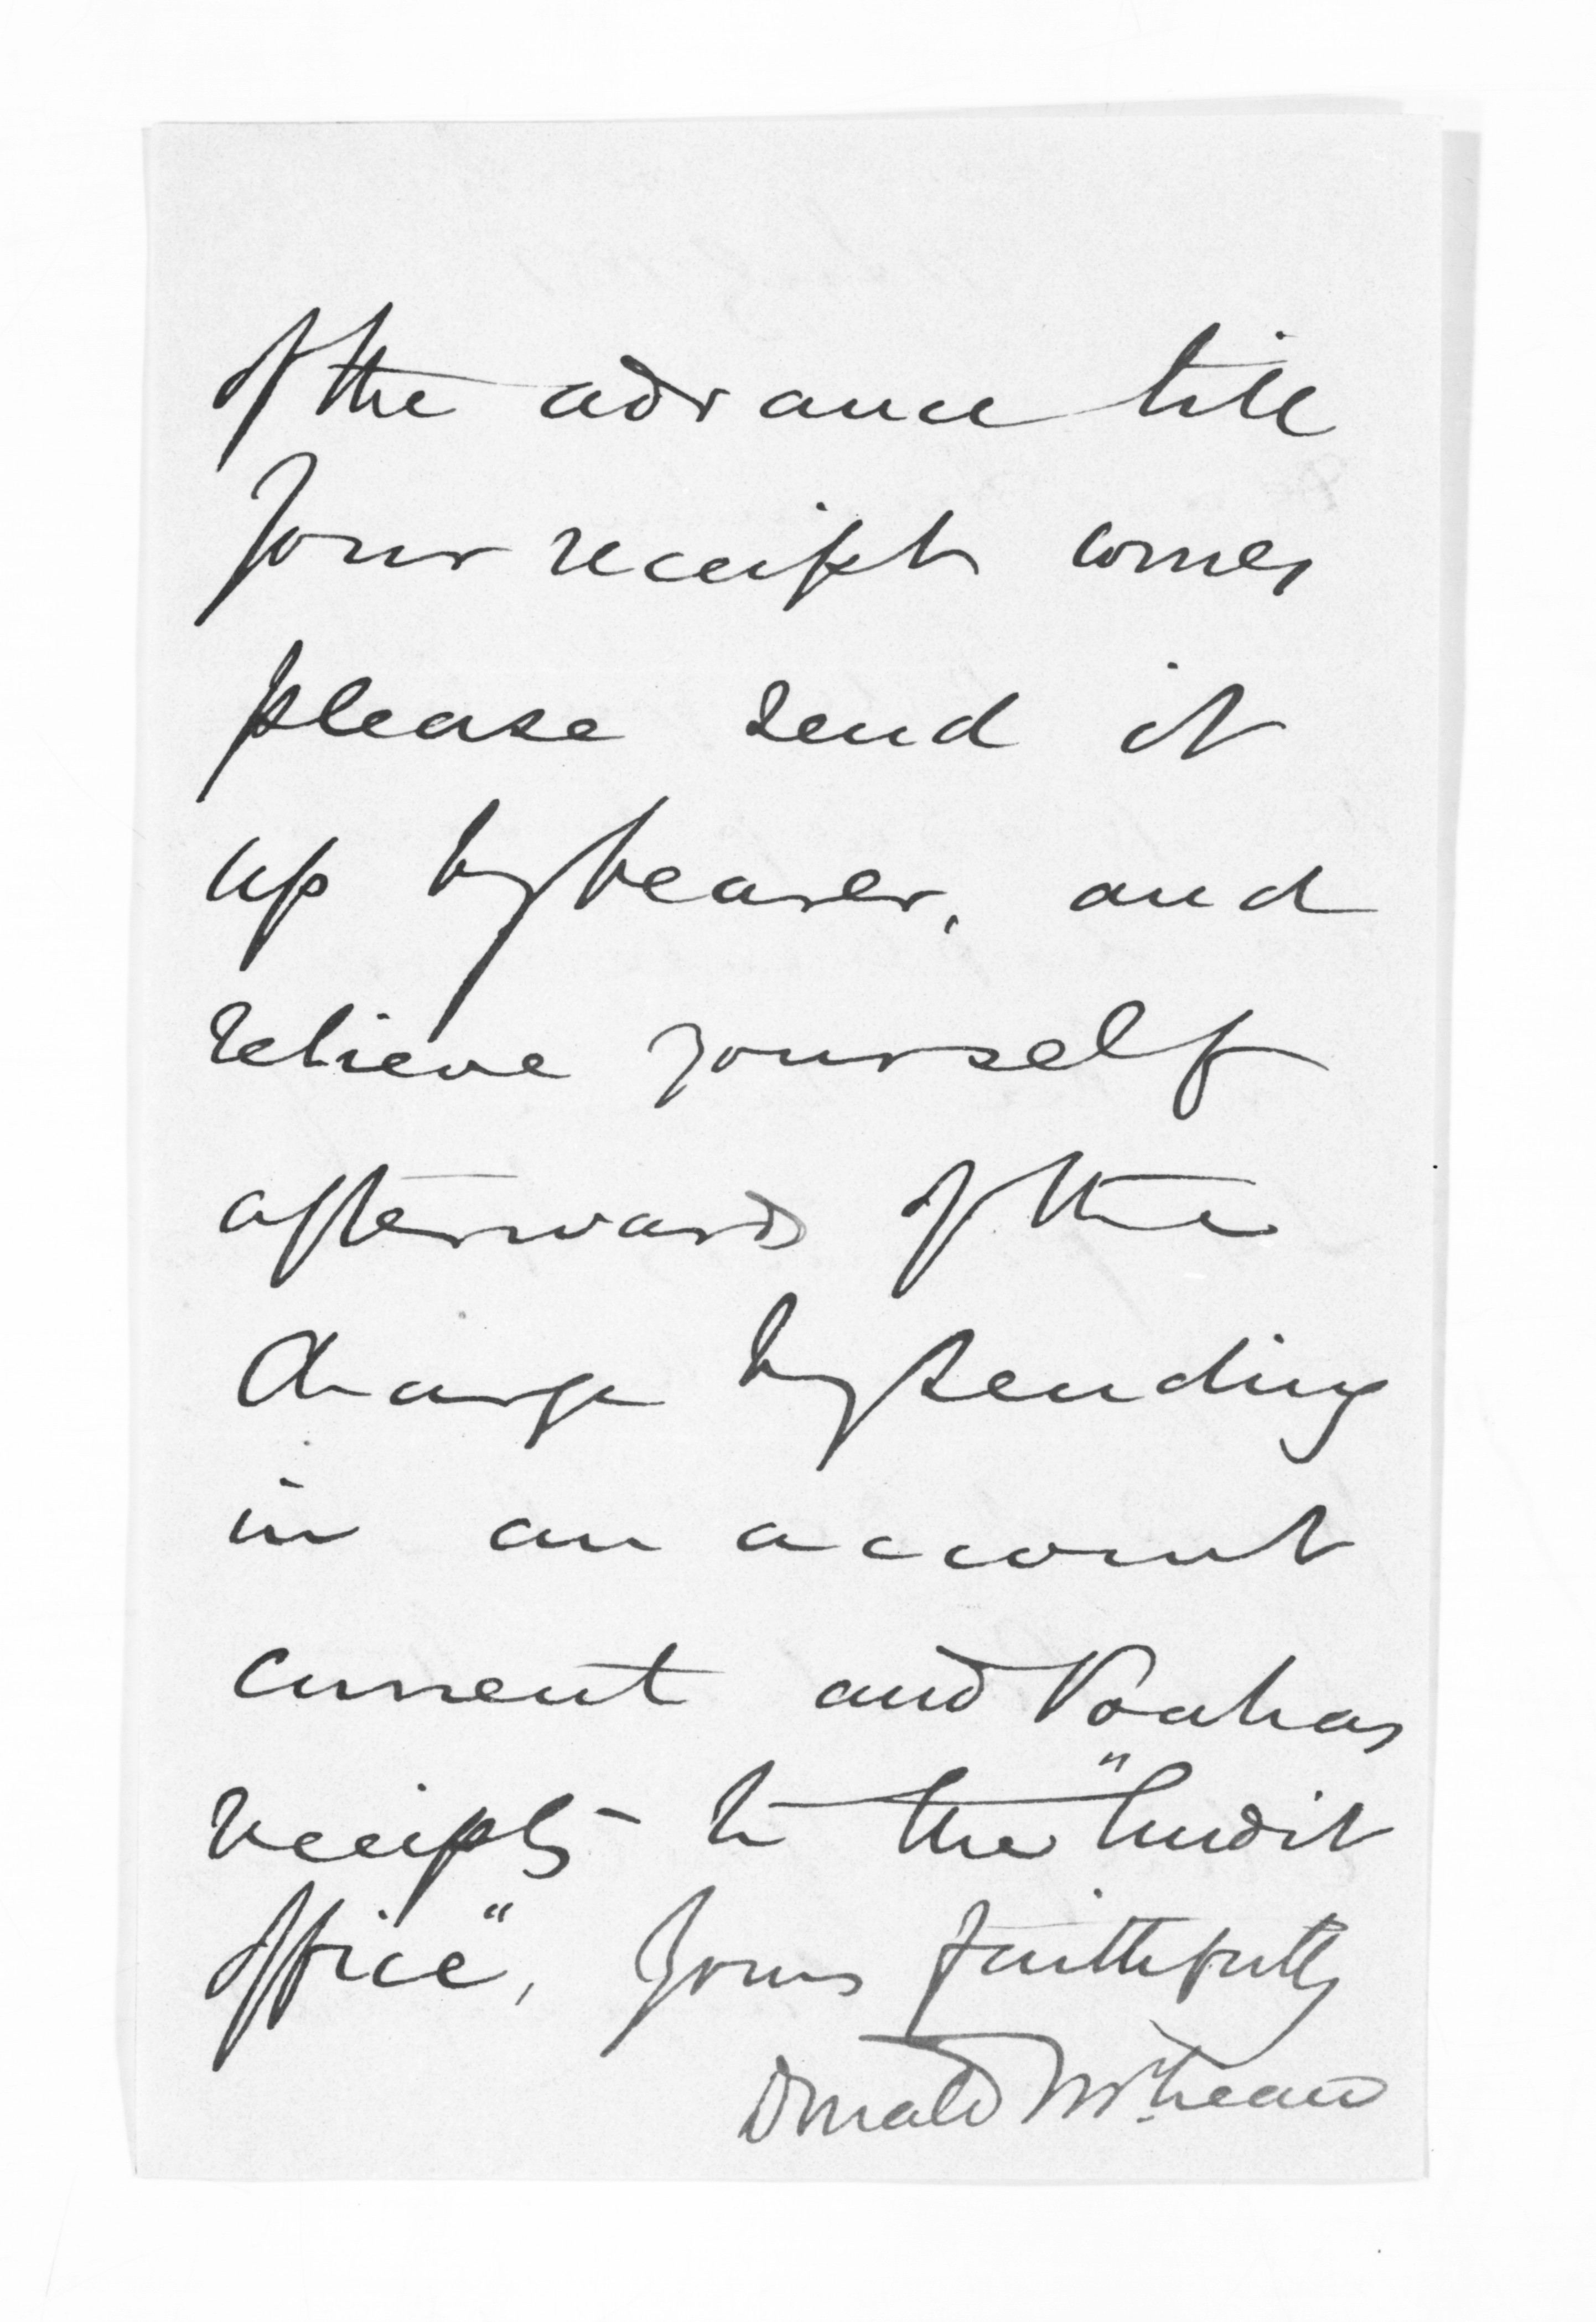 of the advance till
your receipt comes
please send it
up by bearer, and
relieve yourself
afterwards of the
charge by sending
in an account
current and
receipts to the "Audit
Office", Yours faithfully
Donald McLean